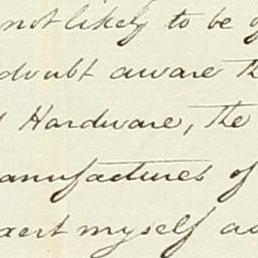 not likely to be
doubt aware
Hardware, the
manufactures of
exert myself as